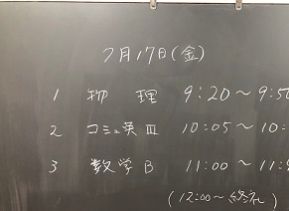 7月17日(金)
1 物理 9:20～9:50
2 コミュ英Ⅲ 10:05～10:
3 数学B 11:00～11:
(12:00～終礼)